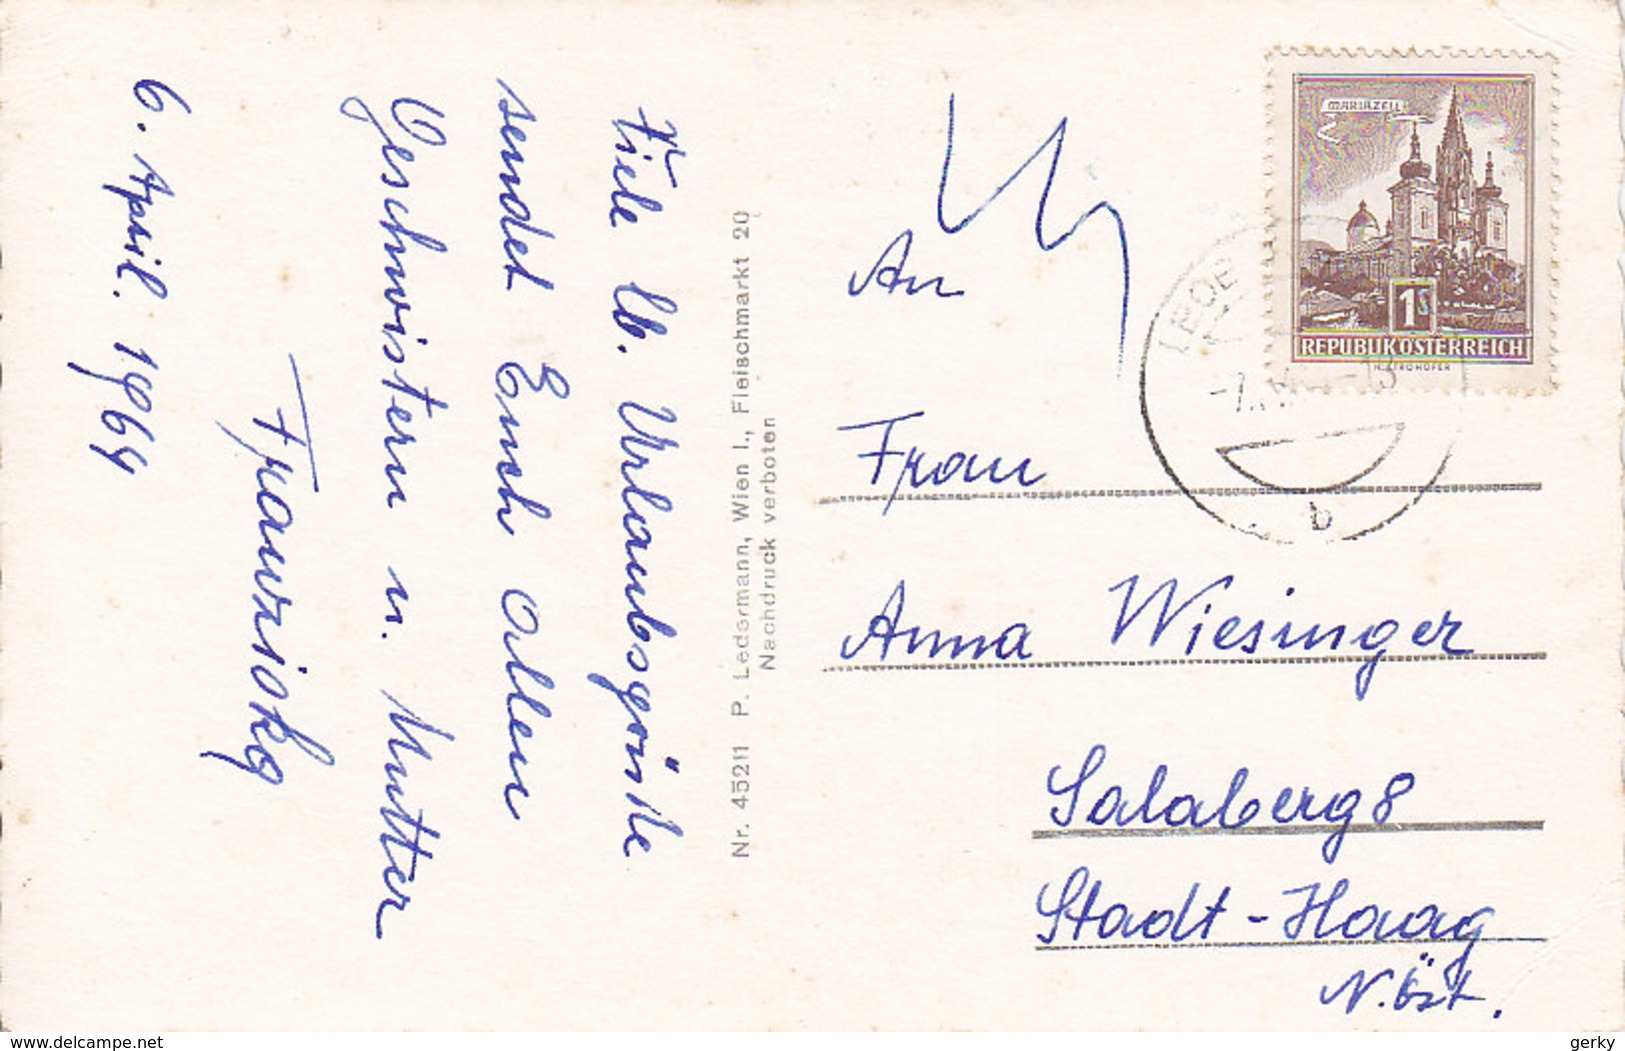 Viele lb. Urlaubsgrüße
sendet Euch allen
Geschwistern u. Mutter
Franziska
6. April. 1964
Nr. 45211 P. Ledermann, Wien I., Fleischmarkt 20
Nachdruck verboten
MARIAZELL
1S
REPUBLIK ÖSTERREICH
b
An
Frau
Anna Wiesinger
Salaberg 8
Stadt-Haag
N.Öst.
www.delcampe.net
gerky